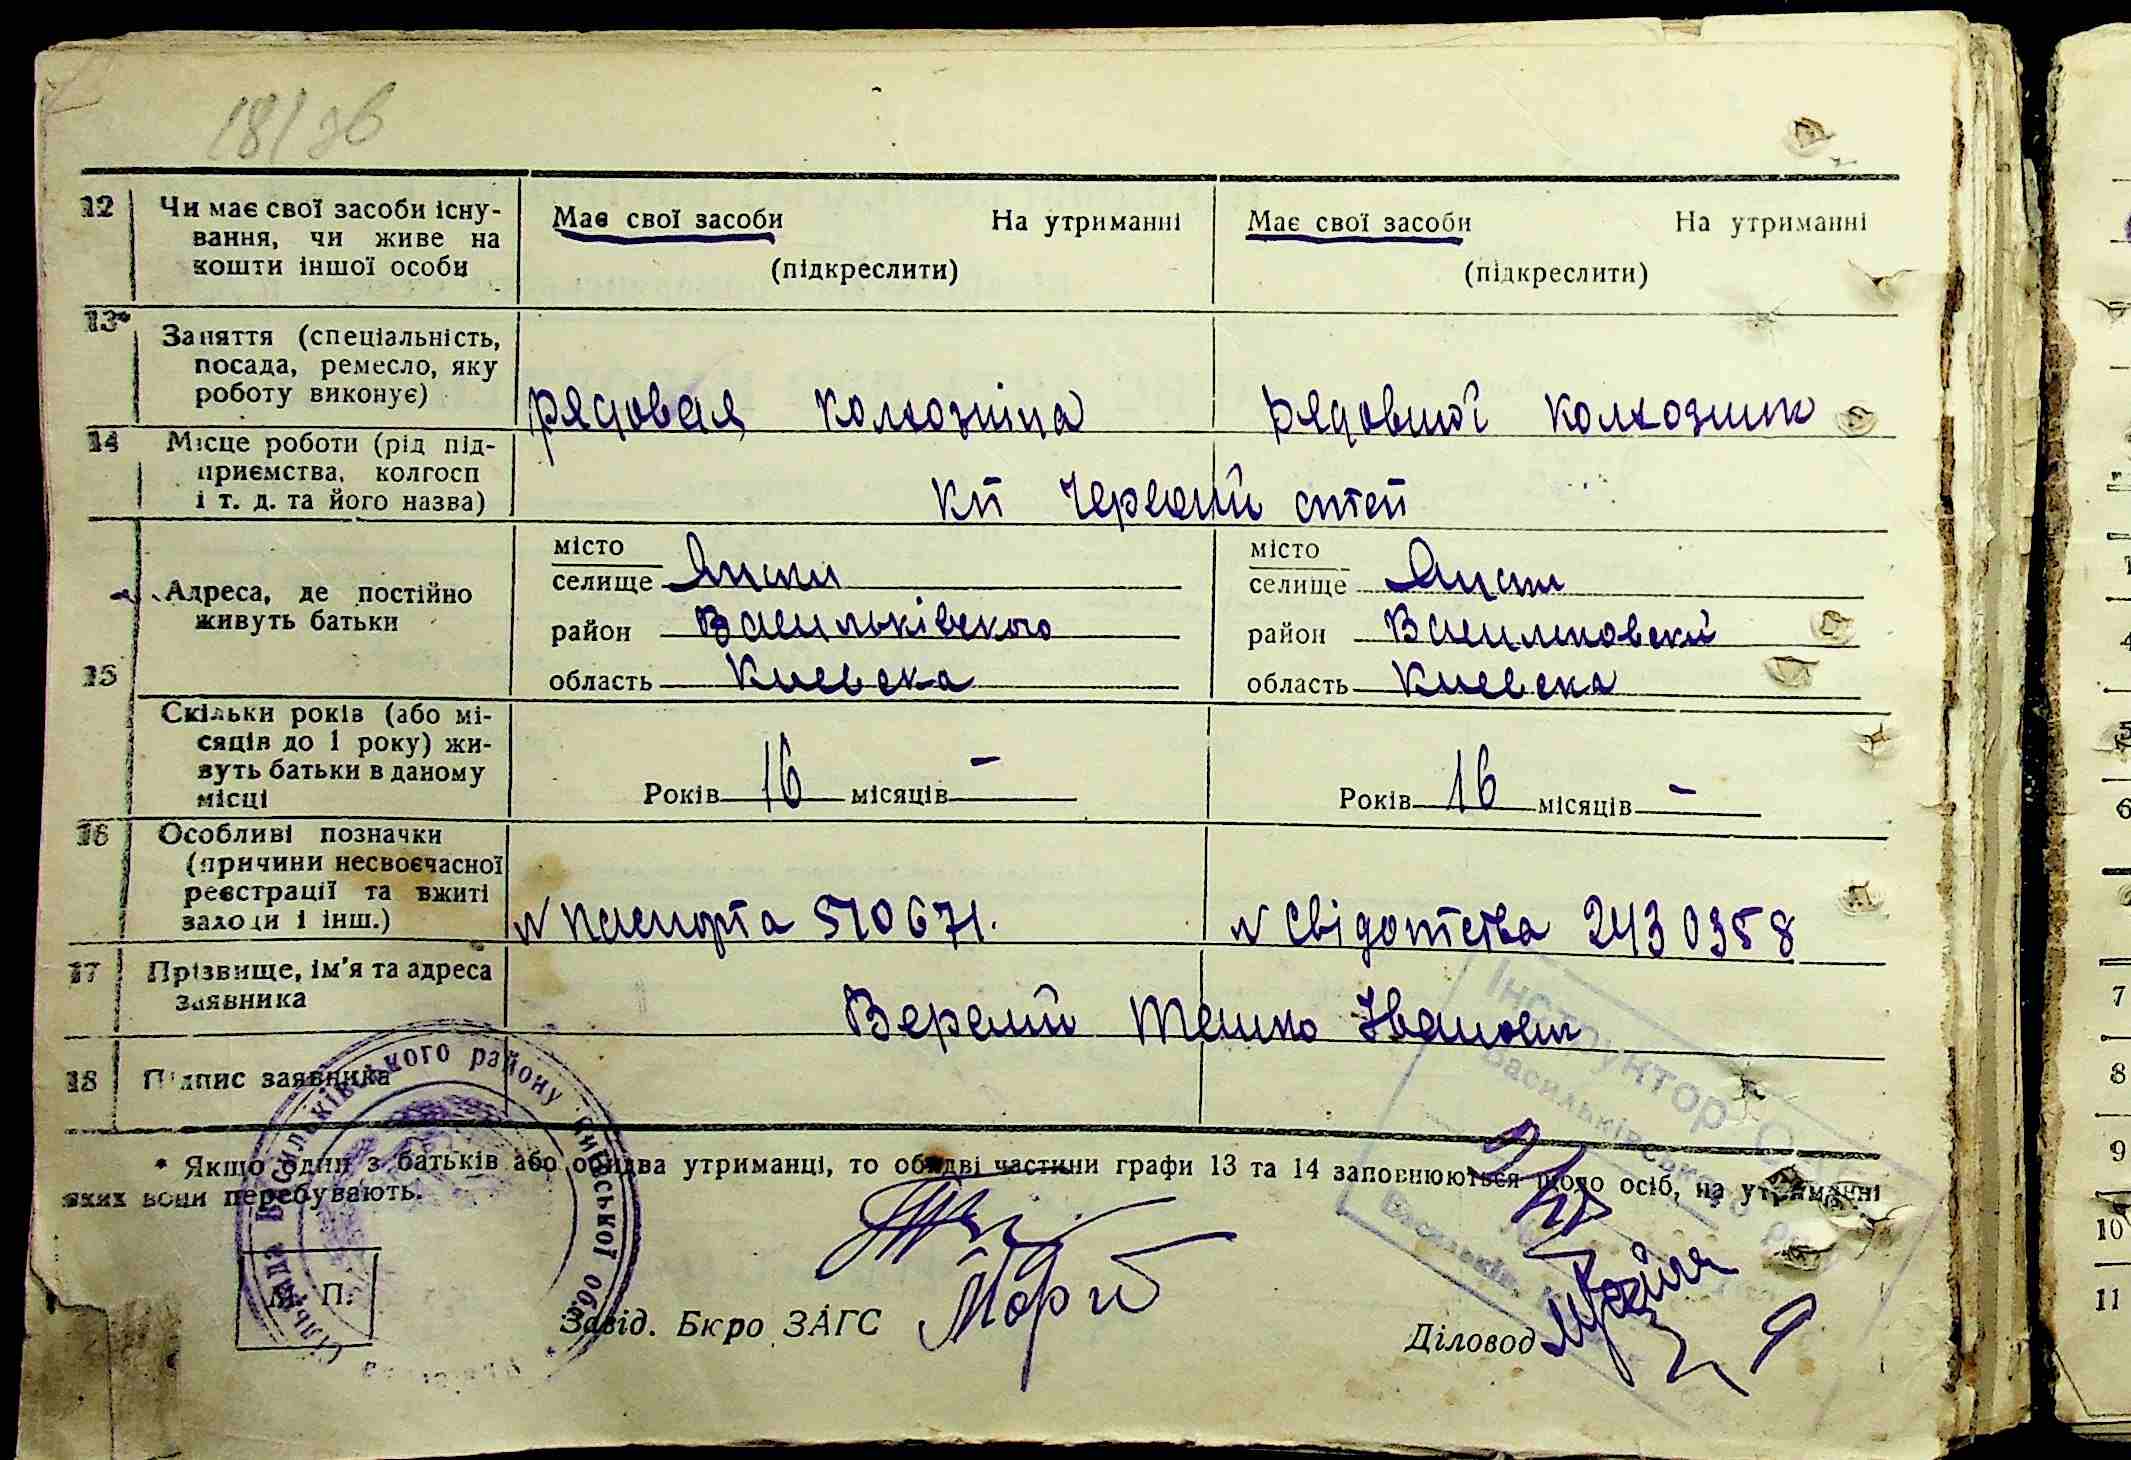 181 зв
12 Чи має свої засоби існу-
вання, чи живе на
кошти іншої особи
Має свої засоби На утриманні
(підкреслити)
Має свої засоби На утриманні
(підкреслити)
13* Заняття (спеціальність,
посада, ремесло, яку
роботу виконує)
рядовая колхозніца
рядовий колхозник
14 Місце роботи (рід під-
приємства, колгосп
і т. д. та його назва)
Червоний степ
15 Адреса, де постійно
живуть батьки
місто
селище
район Васильківского
область Киевска
місто
селище
район Васильковский
область Киевска
Скільки років (або мі-
сяців до 1 року) жи-
вуть батьки в даному
місці
Років 16 місяців -
Років 16 місяців -
16 Особливі позначки
(причини несвоєчасної
реєстрації та вжиті
заходи і інш.)
№ паспорта 510671.
№ свідотства 2430358
17 Прізвище, ім'я та адреса
заявника
Веремій Іванович
18 Підпис заявника
* Якщо один з батьків або обидва утриманці, то обидві частини графи 13 та 14 заповнюються щодо осіб, на утриманні
яких вони перебувають.
М. П.
Завід. Бюро ЗАГС
Діловод
Сільрада Васильківського району Київської обл.
Інструктор
Васильківського